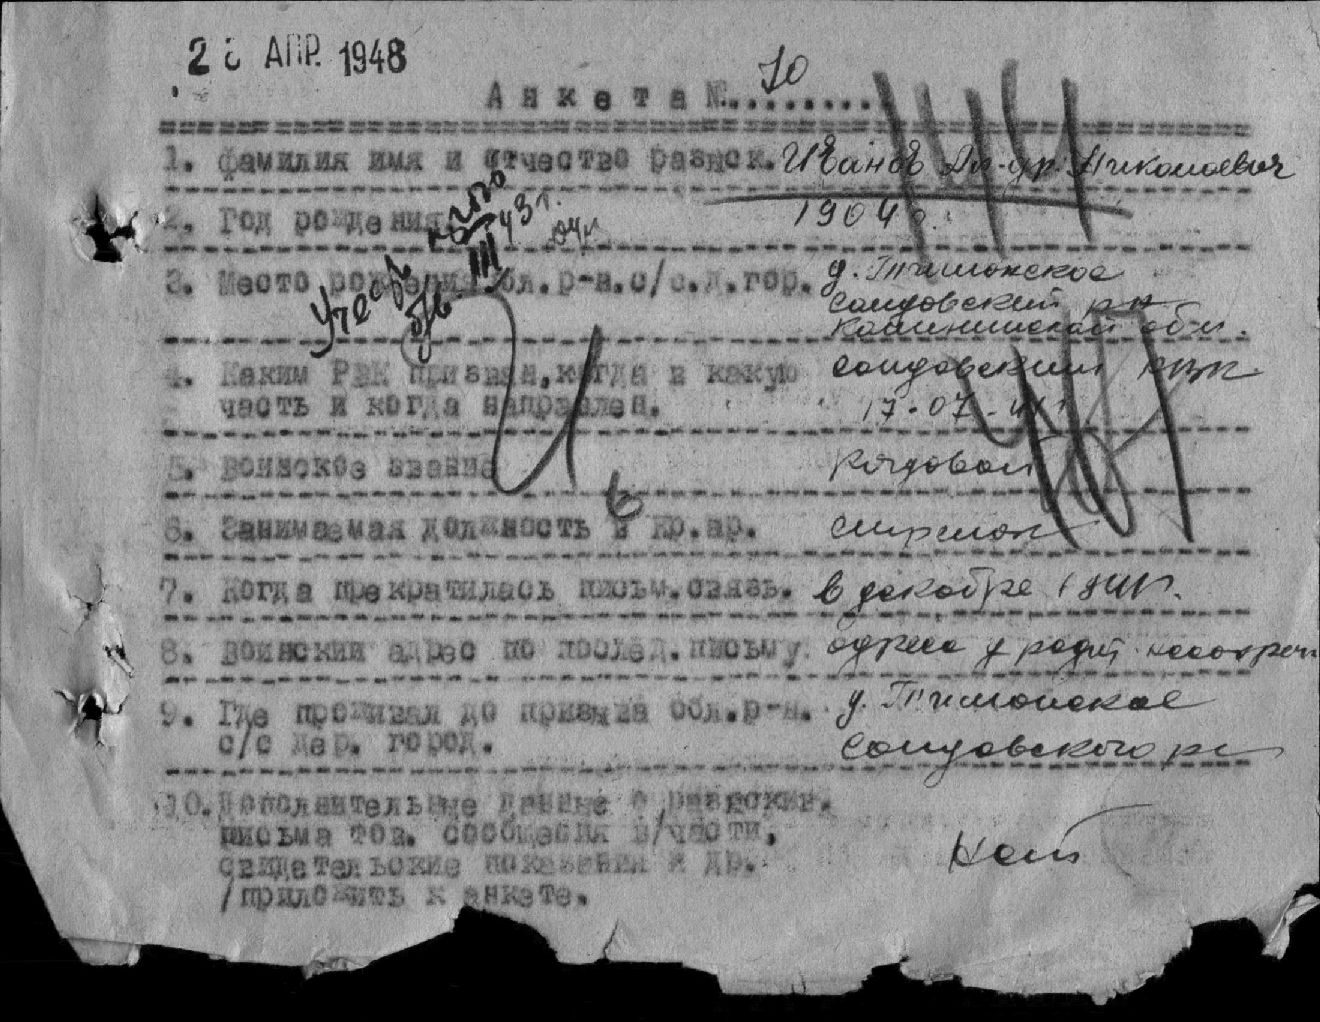 2 АПР. 1948
Анкета №........ 70
1. Фамилия имя и отчество разыск. Иванов Ал-др. Николаевич
2. Год рождения 1904 г.
3. Место рождения обл. р-н. с/с. д. гор. д. Тимонское
Сандовский р-н
Калининской обл.
4. Каким РВК призван, когда в какую Сандовским РВК
часть и когда направлен. 17-07-41
5. Воинское звание рядовой
6. Занимаемая должность в Кр.ар. стрелок
7. Когда прекратилась письм. связь. в декабре 1941г.
8. Воинский адрес по послед. письму. адреса у родит. несохран
9. Где проживал до призыва обл. р-н. д. Тимонское
с/с дер. город. Сандовского р-н
10. Дополнительные данные о разыскив.
письма тов. сообщения в/части,
свидетельские показания и др. нет
/приложить к анкете.